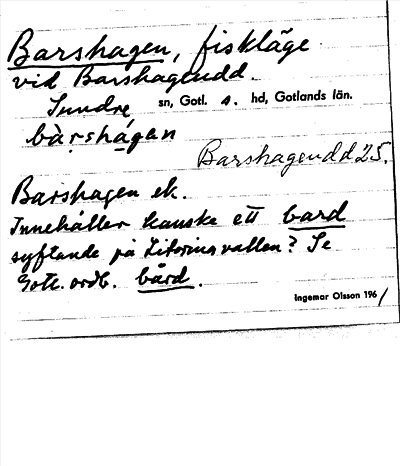 Barshagen, fiskläge
vid Barshagendd.
Sundre sn, Gotl. s. hd, Gotlands län.
bàrshágen
Barshagendd 25.
Barshagen ek.
Innehåller kanske ett bard
syftande på Litorinavallen? Se
Gotl. ordb. bård.
Ingemar Olsson 1961